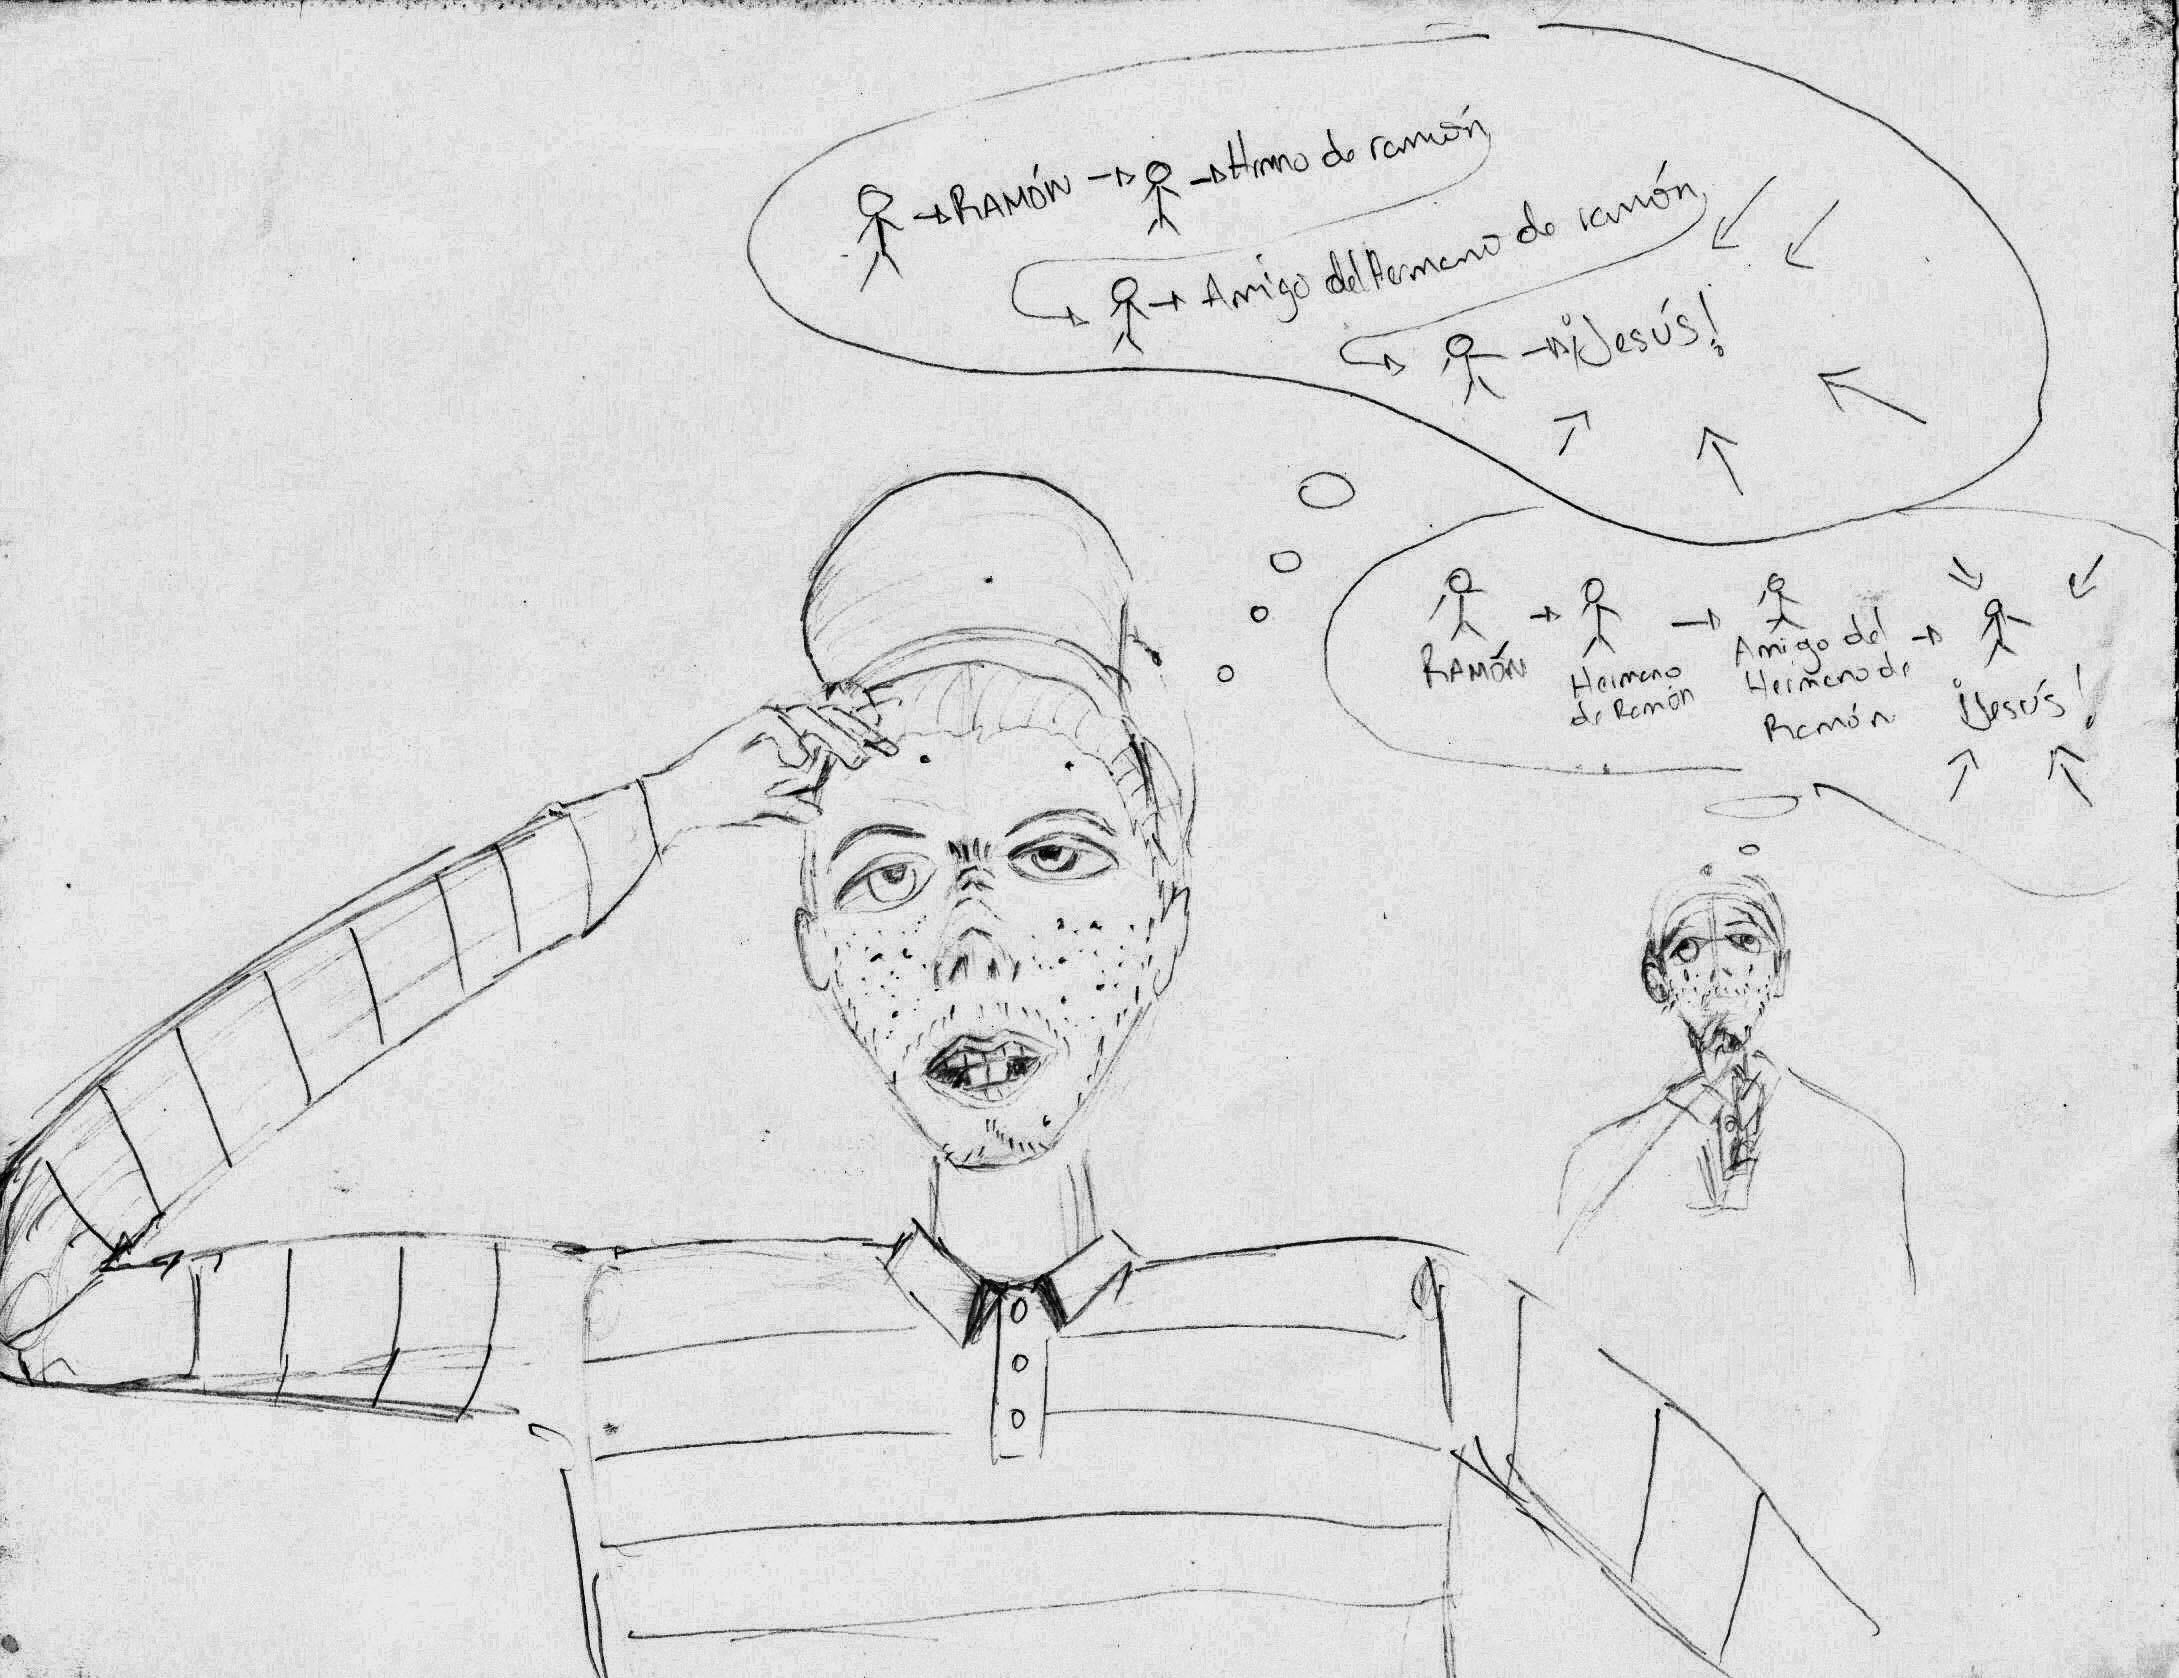 RAMÓN
Hrmno de ramón
Amigo del hermano de ramón
¡Jesús!
RAMÓN
Hermano
de Ramón
Amigo del
Hermano de
Ramón
¡Jesús!